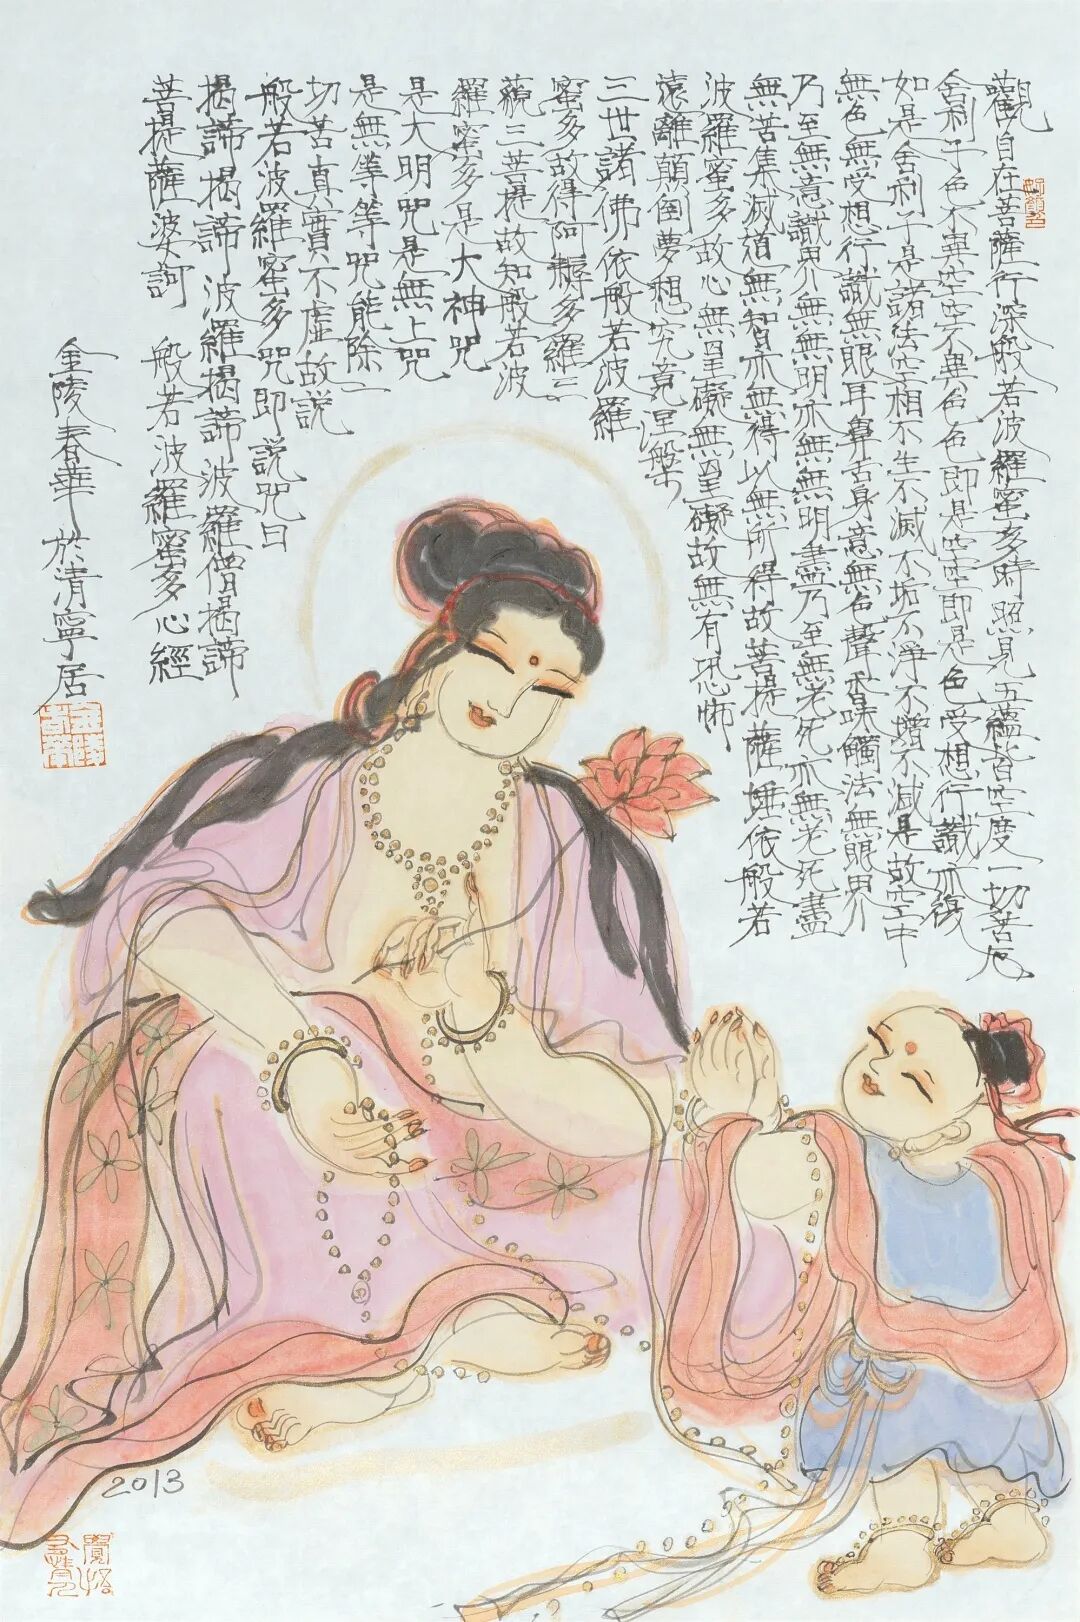 觀自在菩薩行深般若波羅蜜多時照見五蘊皆空度一切苦厄
舍利子色不異空空不異色色即是空空即是色受想行識亦復
如是舍利子是諸法空相不生不滅不垢不淨不增不減是故空中
無色無受想行識無眼耳鼻舌身意無色聲香味觸法無眼界
乃至無意識界無無明亦無無明盡乃至無老死亦無老死盡
無苦集滅道無智亦無得以無所得故菩提薩埵依般若
波羅蜜多故心無罣礙無罣礙故無有恐怖
遠離顛倒夢想究竟涅槃
三世諸佛依般若波羅
蜜多故得阿耨多羅三
藐三菩提故知般若波
羅蜜多是大神咒
是大明咒是無上咒
是無等等咒能除一
切苦真實不虛故説
般若波羅蜜多咒即説咒曰
揭諦揭諦波羅揭諦波羅僧揭諦
菩提薩婆訶 般若波羅蜜多心經
金陵春華於清寧居
2013